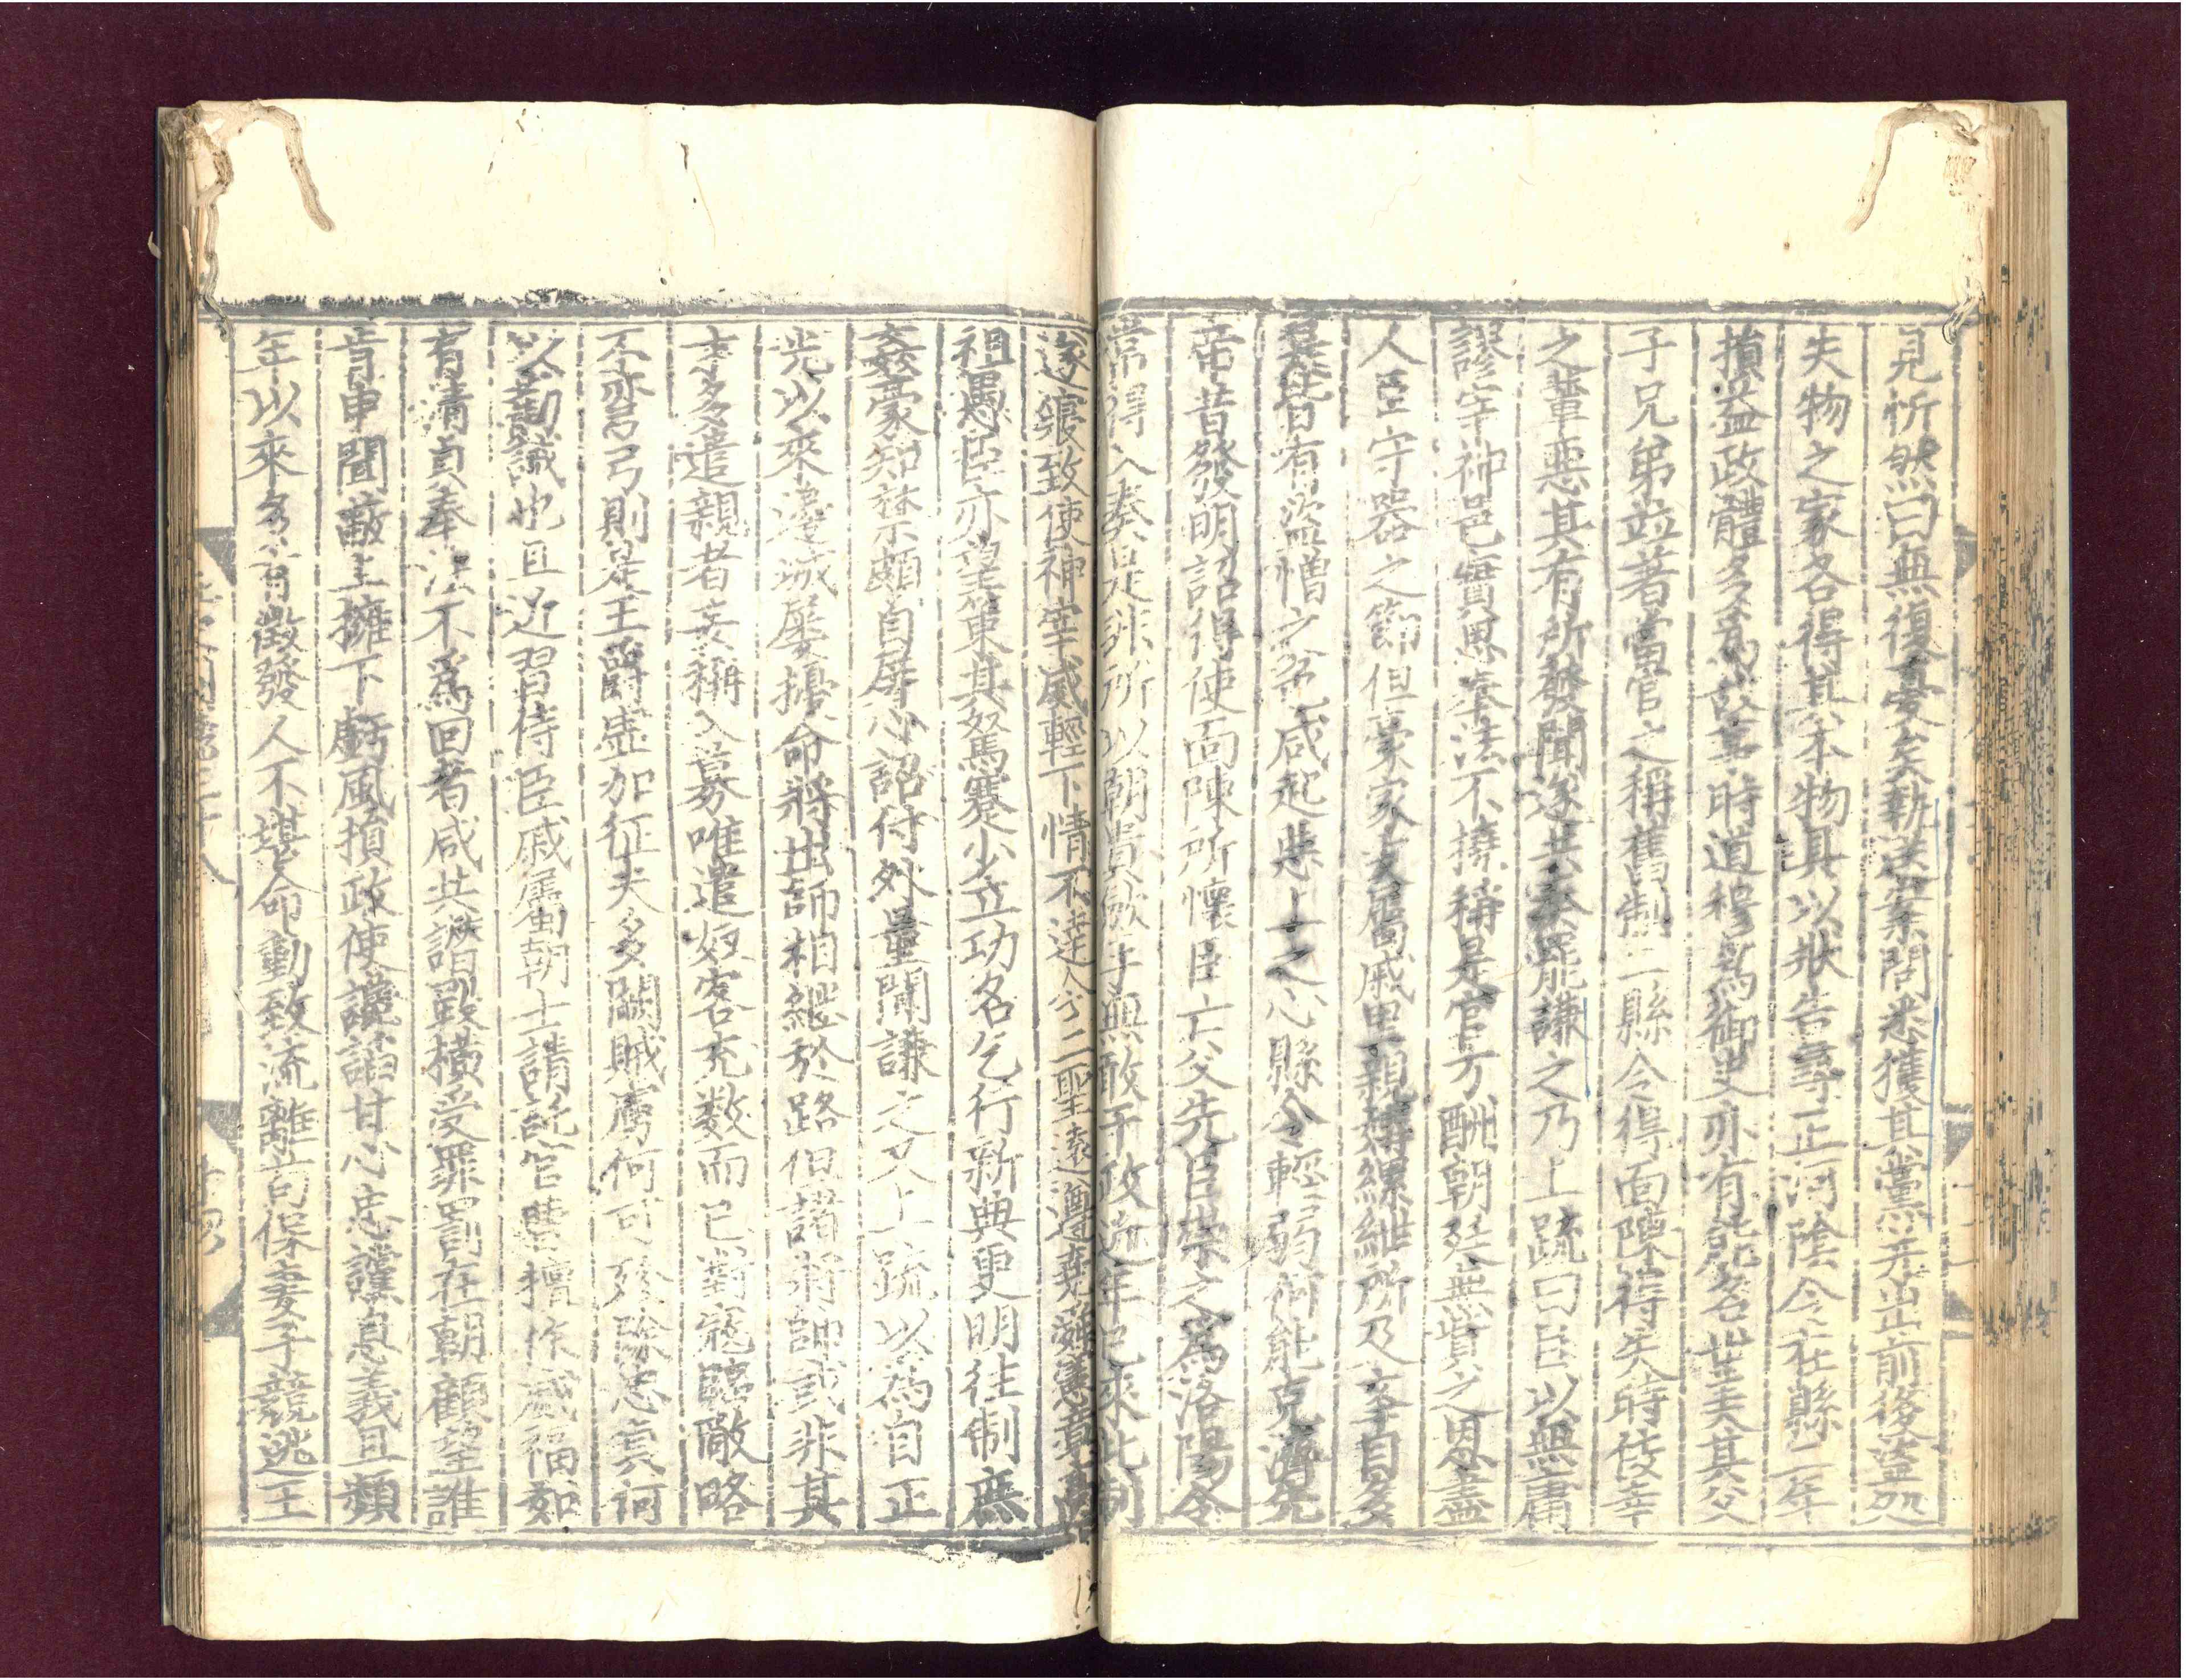 見忻然曰無復憂矣執送案問悉獲其黨并出前後盜処
失物之家各得其本物具以狀告尋正河陰令在縣二年
損益政體多爲故事時道穆爲御史亦有能名世美其父
子兄弟並著當官之稱舊制二縣令得面陳得失時佞幸
之輩惡其有所發聞遂共奏罷謙之乃上疏曰臣以無庸
謬宰神邑實思奉法不撓稱是官方酬朝廷無貲之恩盡
人臣守器之節但豪家支屬戚里親媾縲紲所及率目多
是皆有盜憎之色咸起悪上之心縣令輕弱何能克濟先
帝昔發明詔得使面陳所懷臣亡父先臣崇之爲洛陽令
常得入奏是非所以朝貴斂手無敢干政近年已來此制
遂寢致使神宰威輕下情不達今二聖遠遵堯舜憲章高
祖愚臣亦望策其駑蹇少立功名乞行新典更明往制庶
姦豪知禁頗自屏心詔付外量聞謙之又上疏以爲自正
光以來邊城屢擾命將出師相繼於路但諸將帥或非其
才多遣親者妄稱入募唯遣奴客充数而已對寇臨敵略
不彎弓則是王爵虚加征夫多闕賊虜何可殄除忠貞何
以勸誡也且近習侍臣戚屬朝士請託官曹擅作威福如
有清貞奉法不爲回者咸共譖毀横受罪罰在朝顧望誰
肯申聞蔽上擁下虧風損政使讒諂甘心忠讜息義且頻
年以來多有徵發人不堪命動致流離苟保妻子競逃王